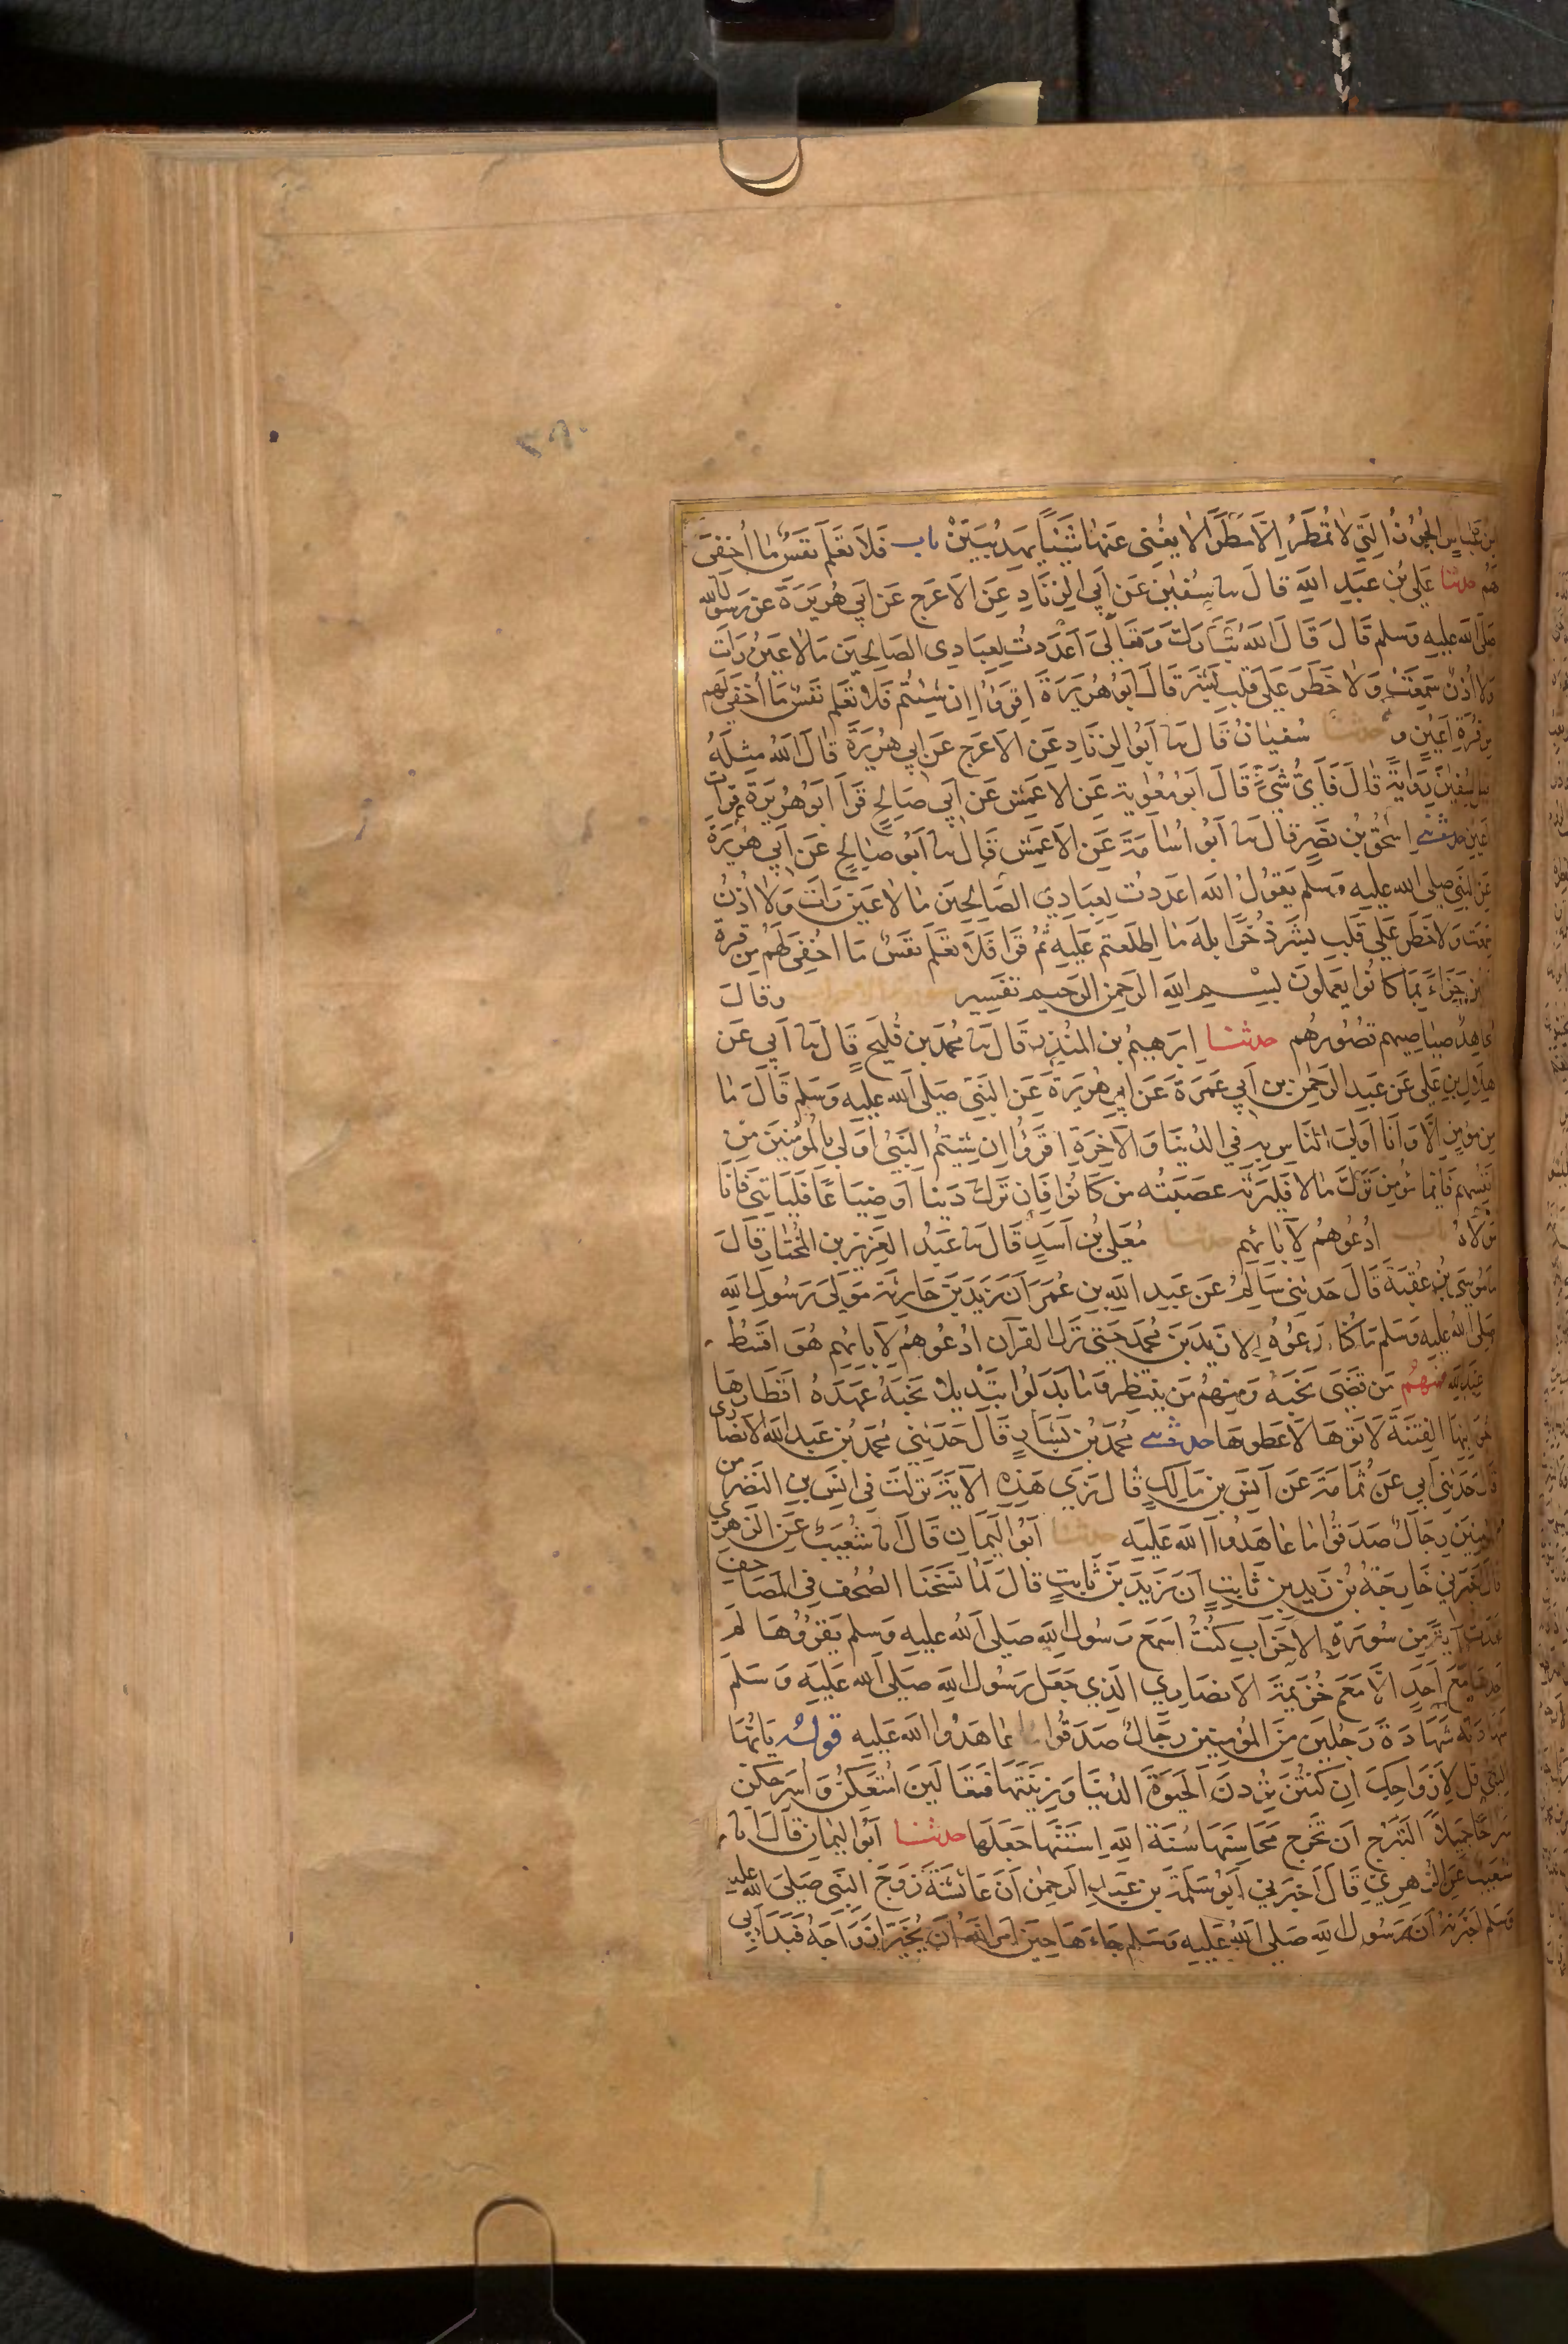 بن عباس الجرز التي لا تمطر الا مطرا لا يغني عنها شيئا يهد يبين باب فلا تعلم نفس ما اخفي
لهم حدثنا علي بن عبد الله قال نا سفين عن ابي الزناد عن الاعرج عن ابي هريرة عن رسول الله
صلى الله عليه وسلم قال قال الله تبارك وتعالى اعددت لعبادى الصالحين ما لا عين رات
ولا اذن سمعت ولا خطر على قلب بشر قال ابو هريرة اقرؤا ان شئتم فلا تعلم نفس ما اخفي لهم
من قرة اعين و حدثنا سفيان قال نا ابو الزناد عن الاعرج عن ابي هريرة قال الله مثله
قيل لسفين رواية قال فاي شيء قال ابو معوية عن الاعمش عن ابي صالح قرا ابو هريرة قرات
اعين حدثني اسحق بن نصر قال نا ابو اسامة عن الاعمش قال نا ابو صالح عن ابي هريرة
عن النبي صلى الله عليه وسلم يقول الله اعددت لعبادي الصالحين ما لا عين رات ولا اذن
سمعت ولا خطر على قلب بشر ذخرا بله ما اطلعتم عليه ثم قرا فلا تعلم نفس ما اخفي لهم من قرة
اعين جزاء بما كانوا يعملون بسم الله الرحمن الرحيم تفسير سورة الاحزاب وقال
مجاهد صياصيهم قصورهم حدثنا ابرهيم بن المنذر قال نا محمد بن فليح قال نا ابي عن
هلال بن علي عن عبد الرحمن بن ابي عمرة عن ابي هريرة عن النبي صلى الله عليه وسلم قال ما
من مؤمن الا وانا اولى الناس به في الدنيا والاخرة اقرؤا ان شئتم النبي اولى بالمؤمنين من
انفسهم فايما مؤمن ترك مالا فليرثه عصبته من كانوا فان ترك دينا او ضياعا فلياتني فانا
مولاه باب ادعوهم لابائهم حدثنا معلى بن اسد قال نا عبد العزيز بن المختار قال
نا موسى بن عقبة قال حدثني سالم عن عبد الله بن عمر ان زيد بن حارثة مولى رسول الله
صلى الله عليه وسلم ما كنا ندعوه الا زيد بن محمد حتى نزل القرآن ادعوهم لابائهم هو اقسط
عند الله فمنهم من قضى نحبه ومنهم من ينتظر وما بدلوا تبديلا نحبه عهده اقطارها
جوانبها الفتنة لاتوها لاعطوها حدثني محمد بن بشار قال حدثني محمد بن عبد الله الانصاري
قال حدثني ابي عن ثمامة عن انس بن مالك قال نرى هذه الاية نزلت في انس بن النضر من
المؤمنين رجال صدقوا ما عاهدوا الله عليه حدثنا ابو اليمان قال نا شعيب عن الزهري
قال اخبرني خارجة بن زيد بن ثابت ان زيد بن ثابت قال لما نسخنا الصحف في المصاحف
فقدت آية من سورة الاحزاب كنت اسمع رسول الله صلى الله عليه وسلم يقرؤها لم
اجدها مع احد الا مع خزيمة الانصاري الذي جعل رسول الله صلى الله عليه وسلم
شهادته شهادة رجلين من المؤمنين رجال صدقوا ما عاهدوا الله عليه قوله يا ايها
النبي قل لازواجك ان كنتن تردن الحيوة الدنيا وزينتها فتعالين امتعكن واسرحكن
سراحا جميلا التبرج ان تخرج محاسنها سنة الله استنها جعلها حدثنا ابو اليمان قال انا
شعيب عن الزهري قال اخبرني ابو سلمة بن عبد الرحمن ان عائشة زوج النبي صلى الله عليه
وسلم اخبرته ان رسول الله صلى الله عليه وسلم جاءها حين امر الله ان يخير ازواجه فبدا بي